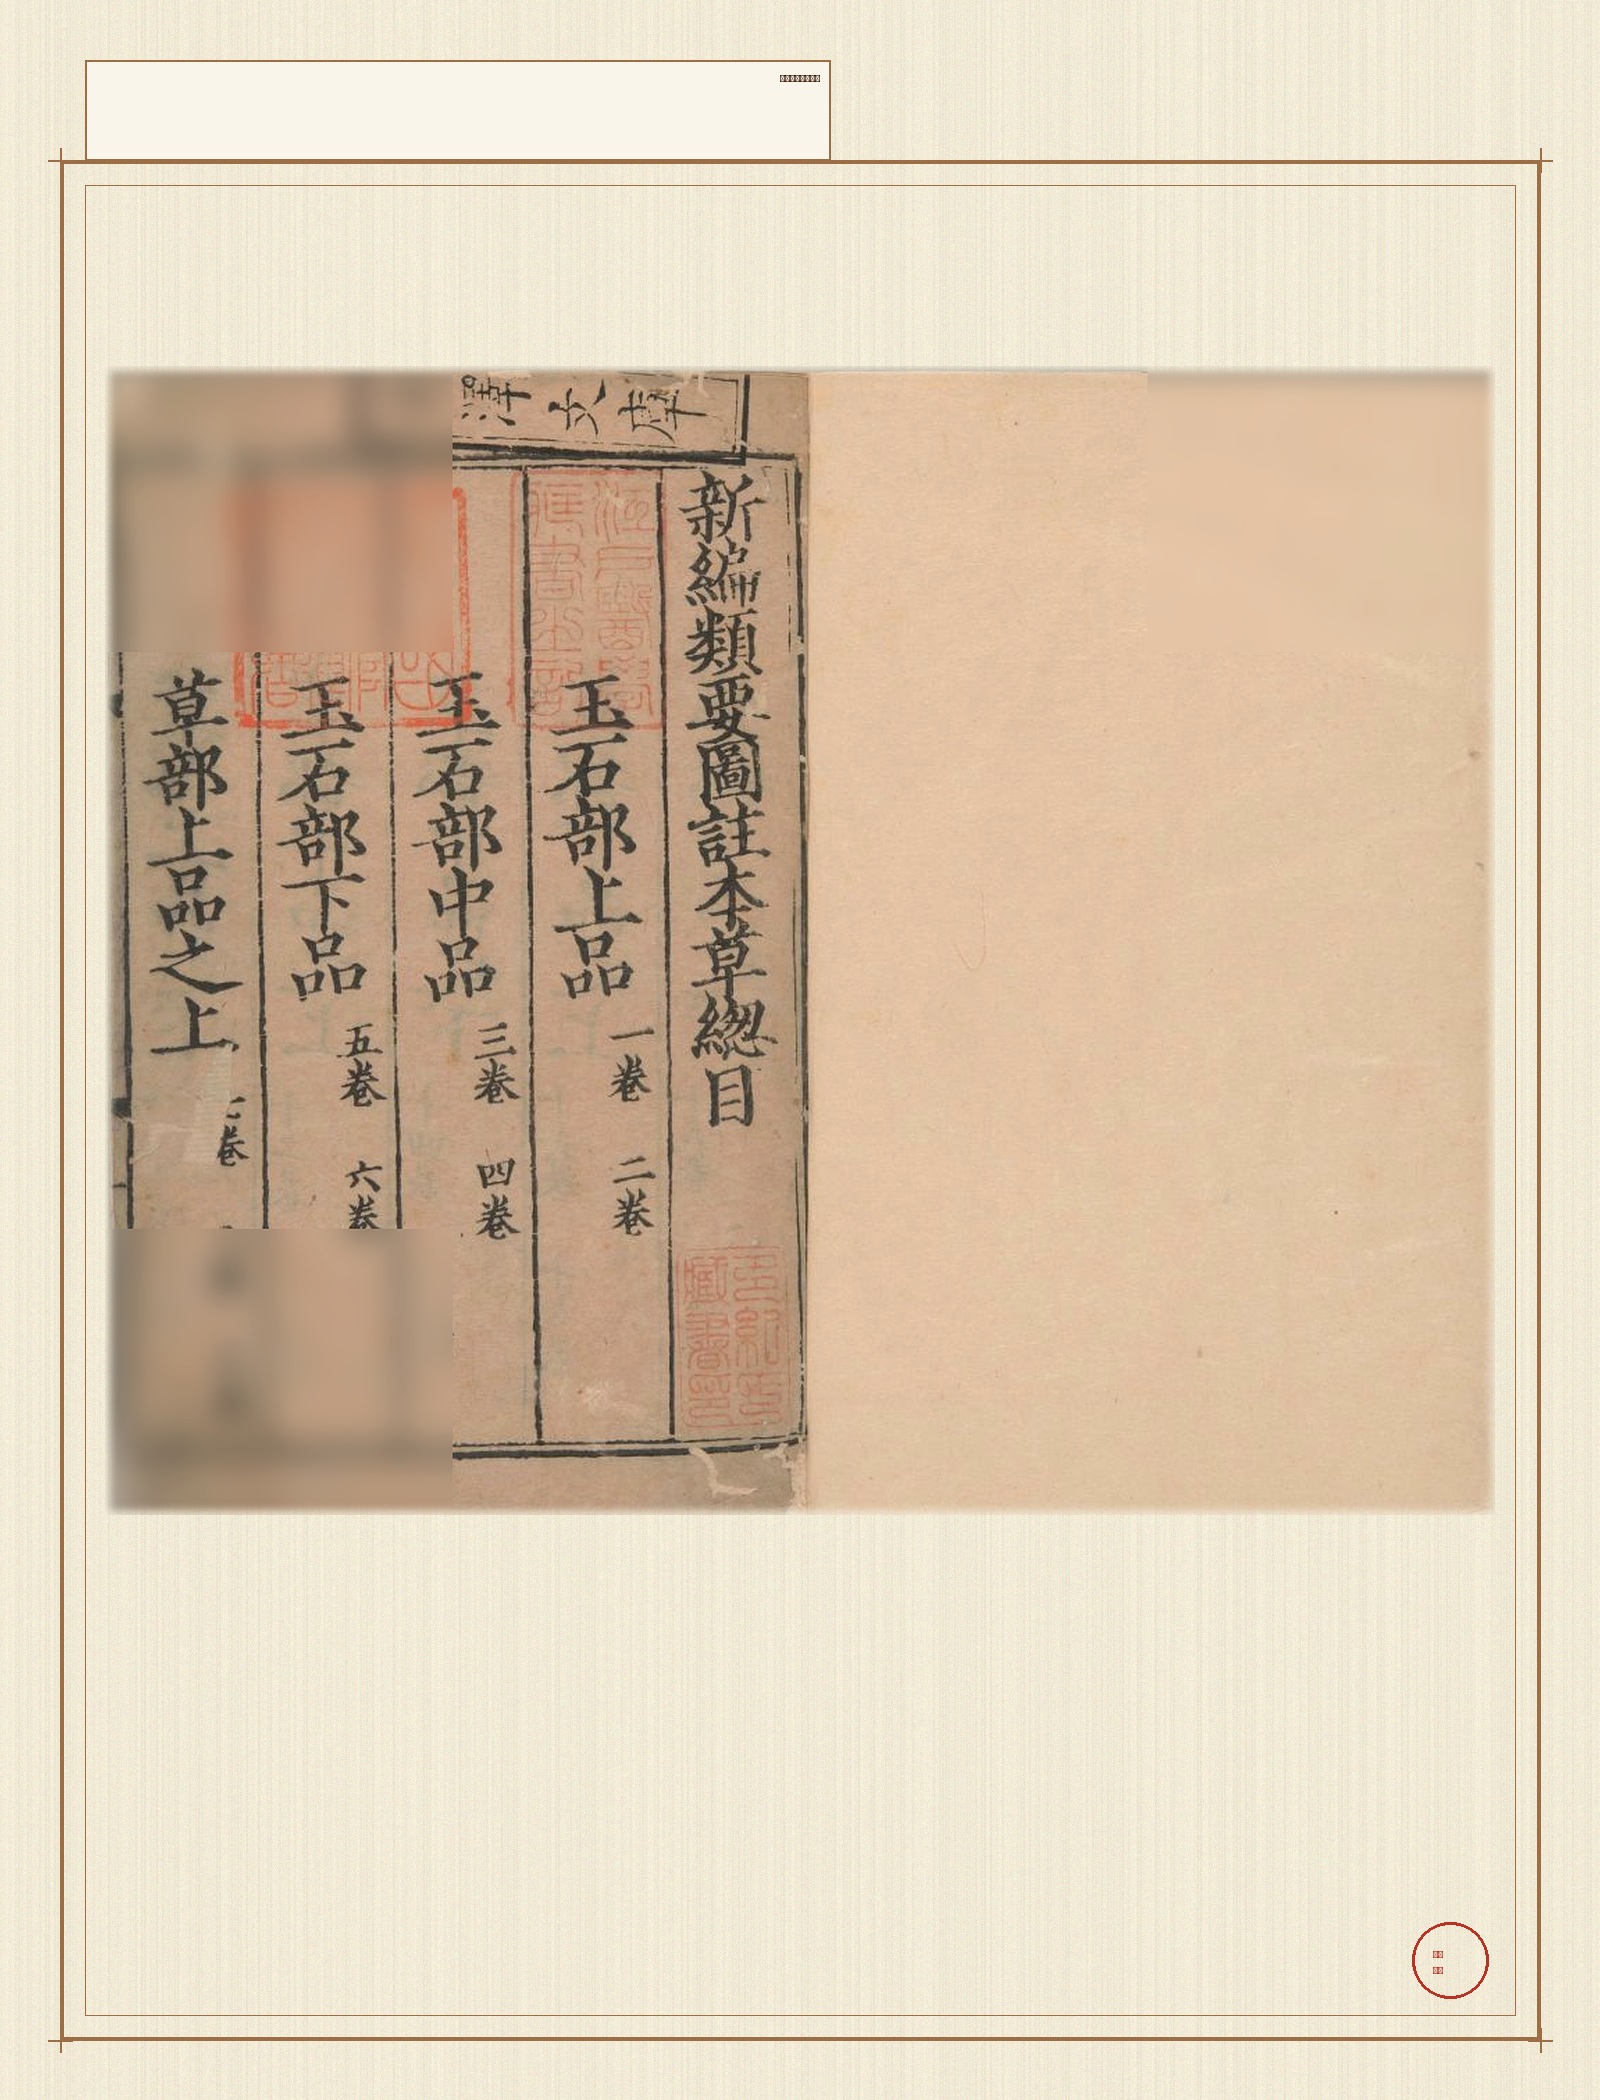 新編類要圖註本草緫目
玉石部上品 一卷 二卷
玉石部中品 三卷 四卷
玉石部下品 五卷 六卷
草部上品之上 卷